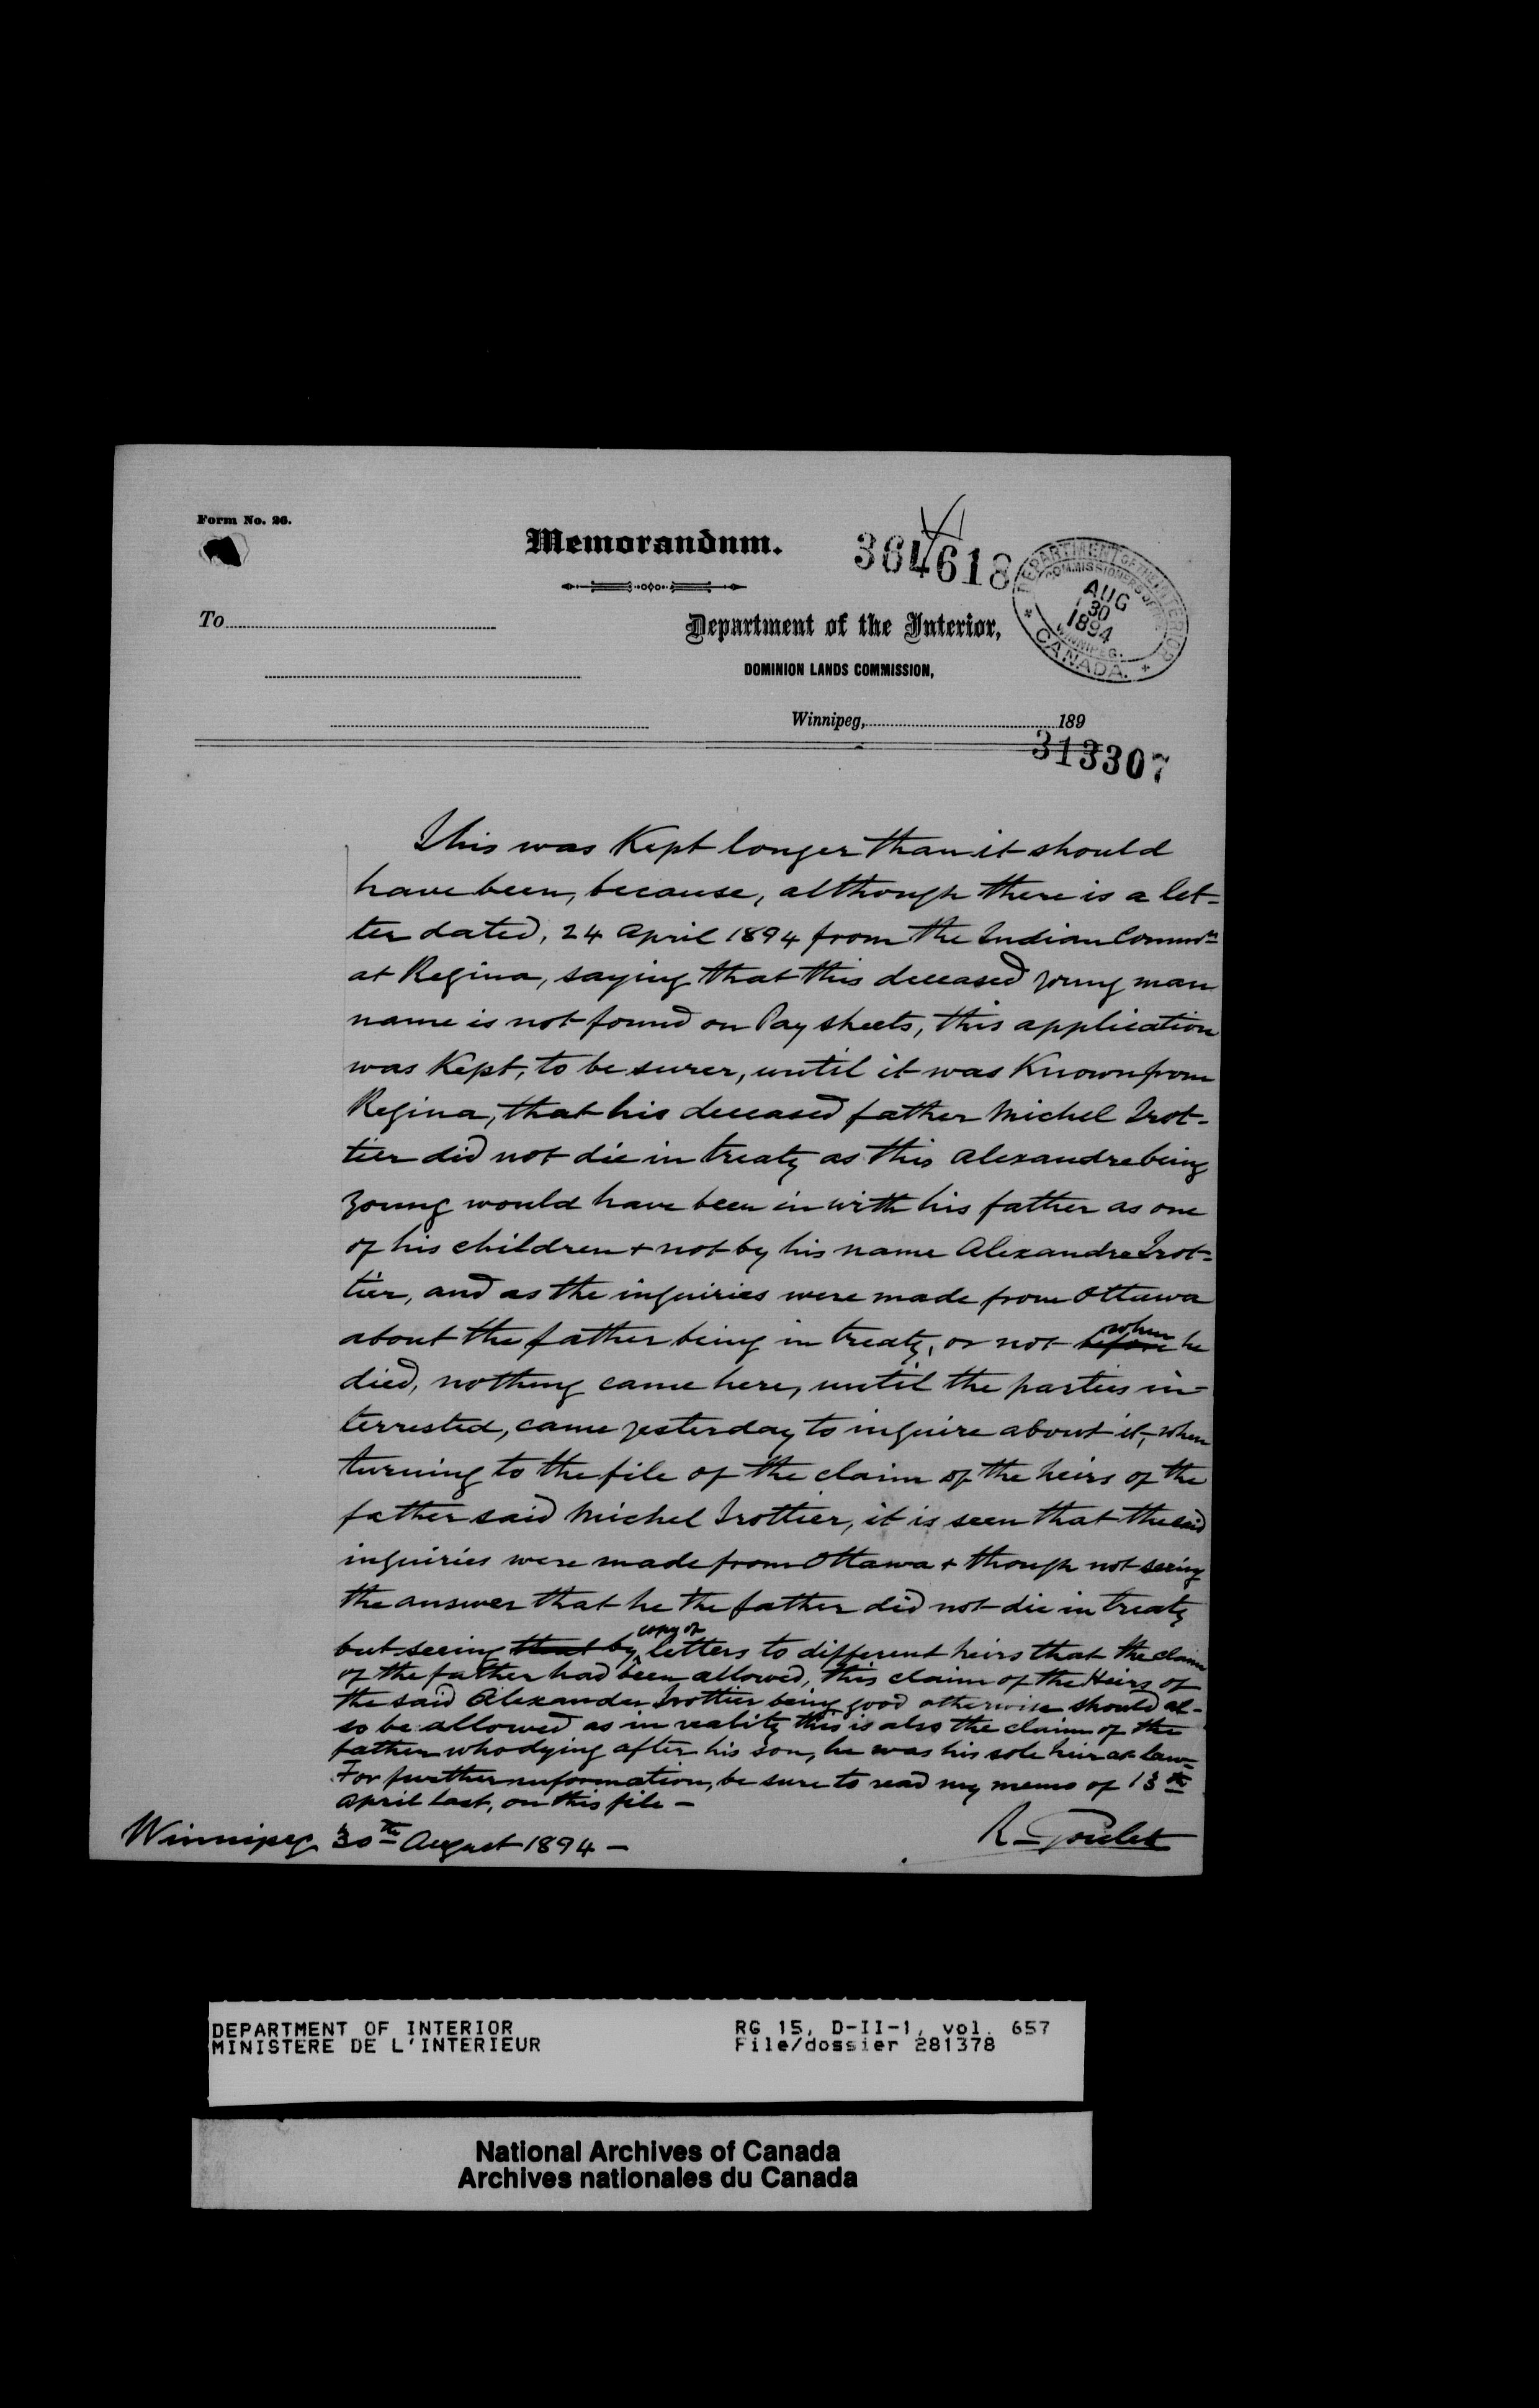 Form No. 26.
Memorandum.
364618
DEPARTMENT OF THE INTERIOR
COMMISSIONERS OFFICE
AUG
30
1894
WINNIPEG.
* CANADA. *
To
Department of the Interior,
DOMINION LANDS COMMISSION,
Winnipeg, 189
313307
This was Kept longer than it should
have been, because, although there is a let-
ter dated, 24 April 1894 from the Indian Commr
at Regina, saying that this deceased young man
name is not found on Pay sheets, this application
was Kept, to be surer, until it was Known from
Regina, that his deceased father Michel Trot-
tier did not die in treaty as this Alexandre being
young would have been in with his father as one
of his children + not by his name Alexandre Trot-
tier, and as the inquiries were made from Ottawa
about the father being in treaty, or not before when he
died, nothing came here, until the parties in-
terrested, came yesterday to inquire about it, when
turning to the file of the claim of the heirs of the
father said Michel Trottier, it is seen that the said
inquiries were made from Ottawa + though not seeing
the answer that he the father did not die in treaty
but seeing that by copy of letters to different heirs that the claim
of the father had been allowed, this claim of the Heirs of
the said Alexander Trottier being good otherwise should al-
so be allowed as in reality this is also the claim of the
father who dying after his son, he was his sole heir at law-
For further information, be sure to read my memo of 13th
April last, on this file -
Winnipeg 30th August 1894 -
R. Goulet
DEPARTMENT OF INTERIOR
MINISTERE DE L'INTERIEUR
RG 15, D-II-1, vol. 657
File/dossier 281378
National Archives of Canada
Archives nationales du Canada